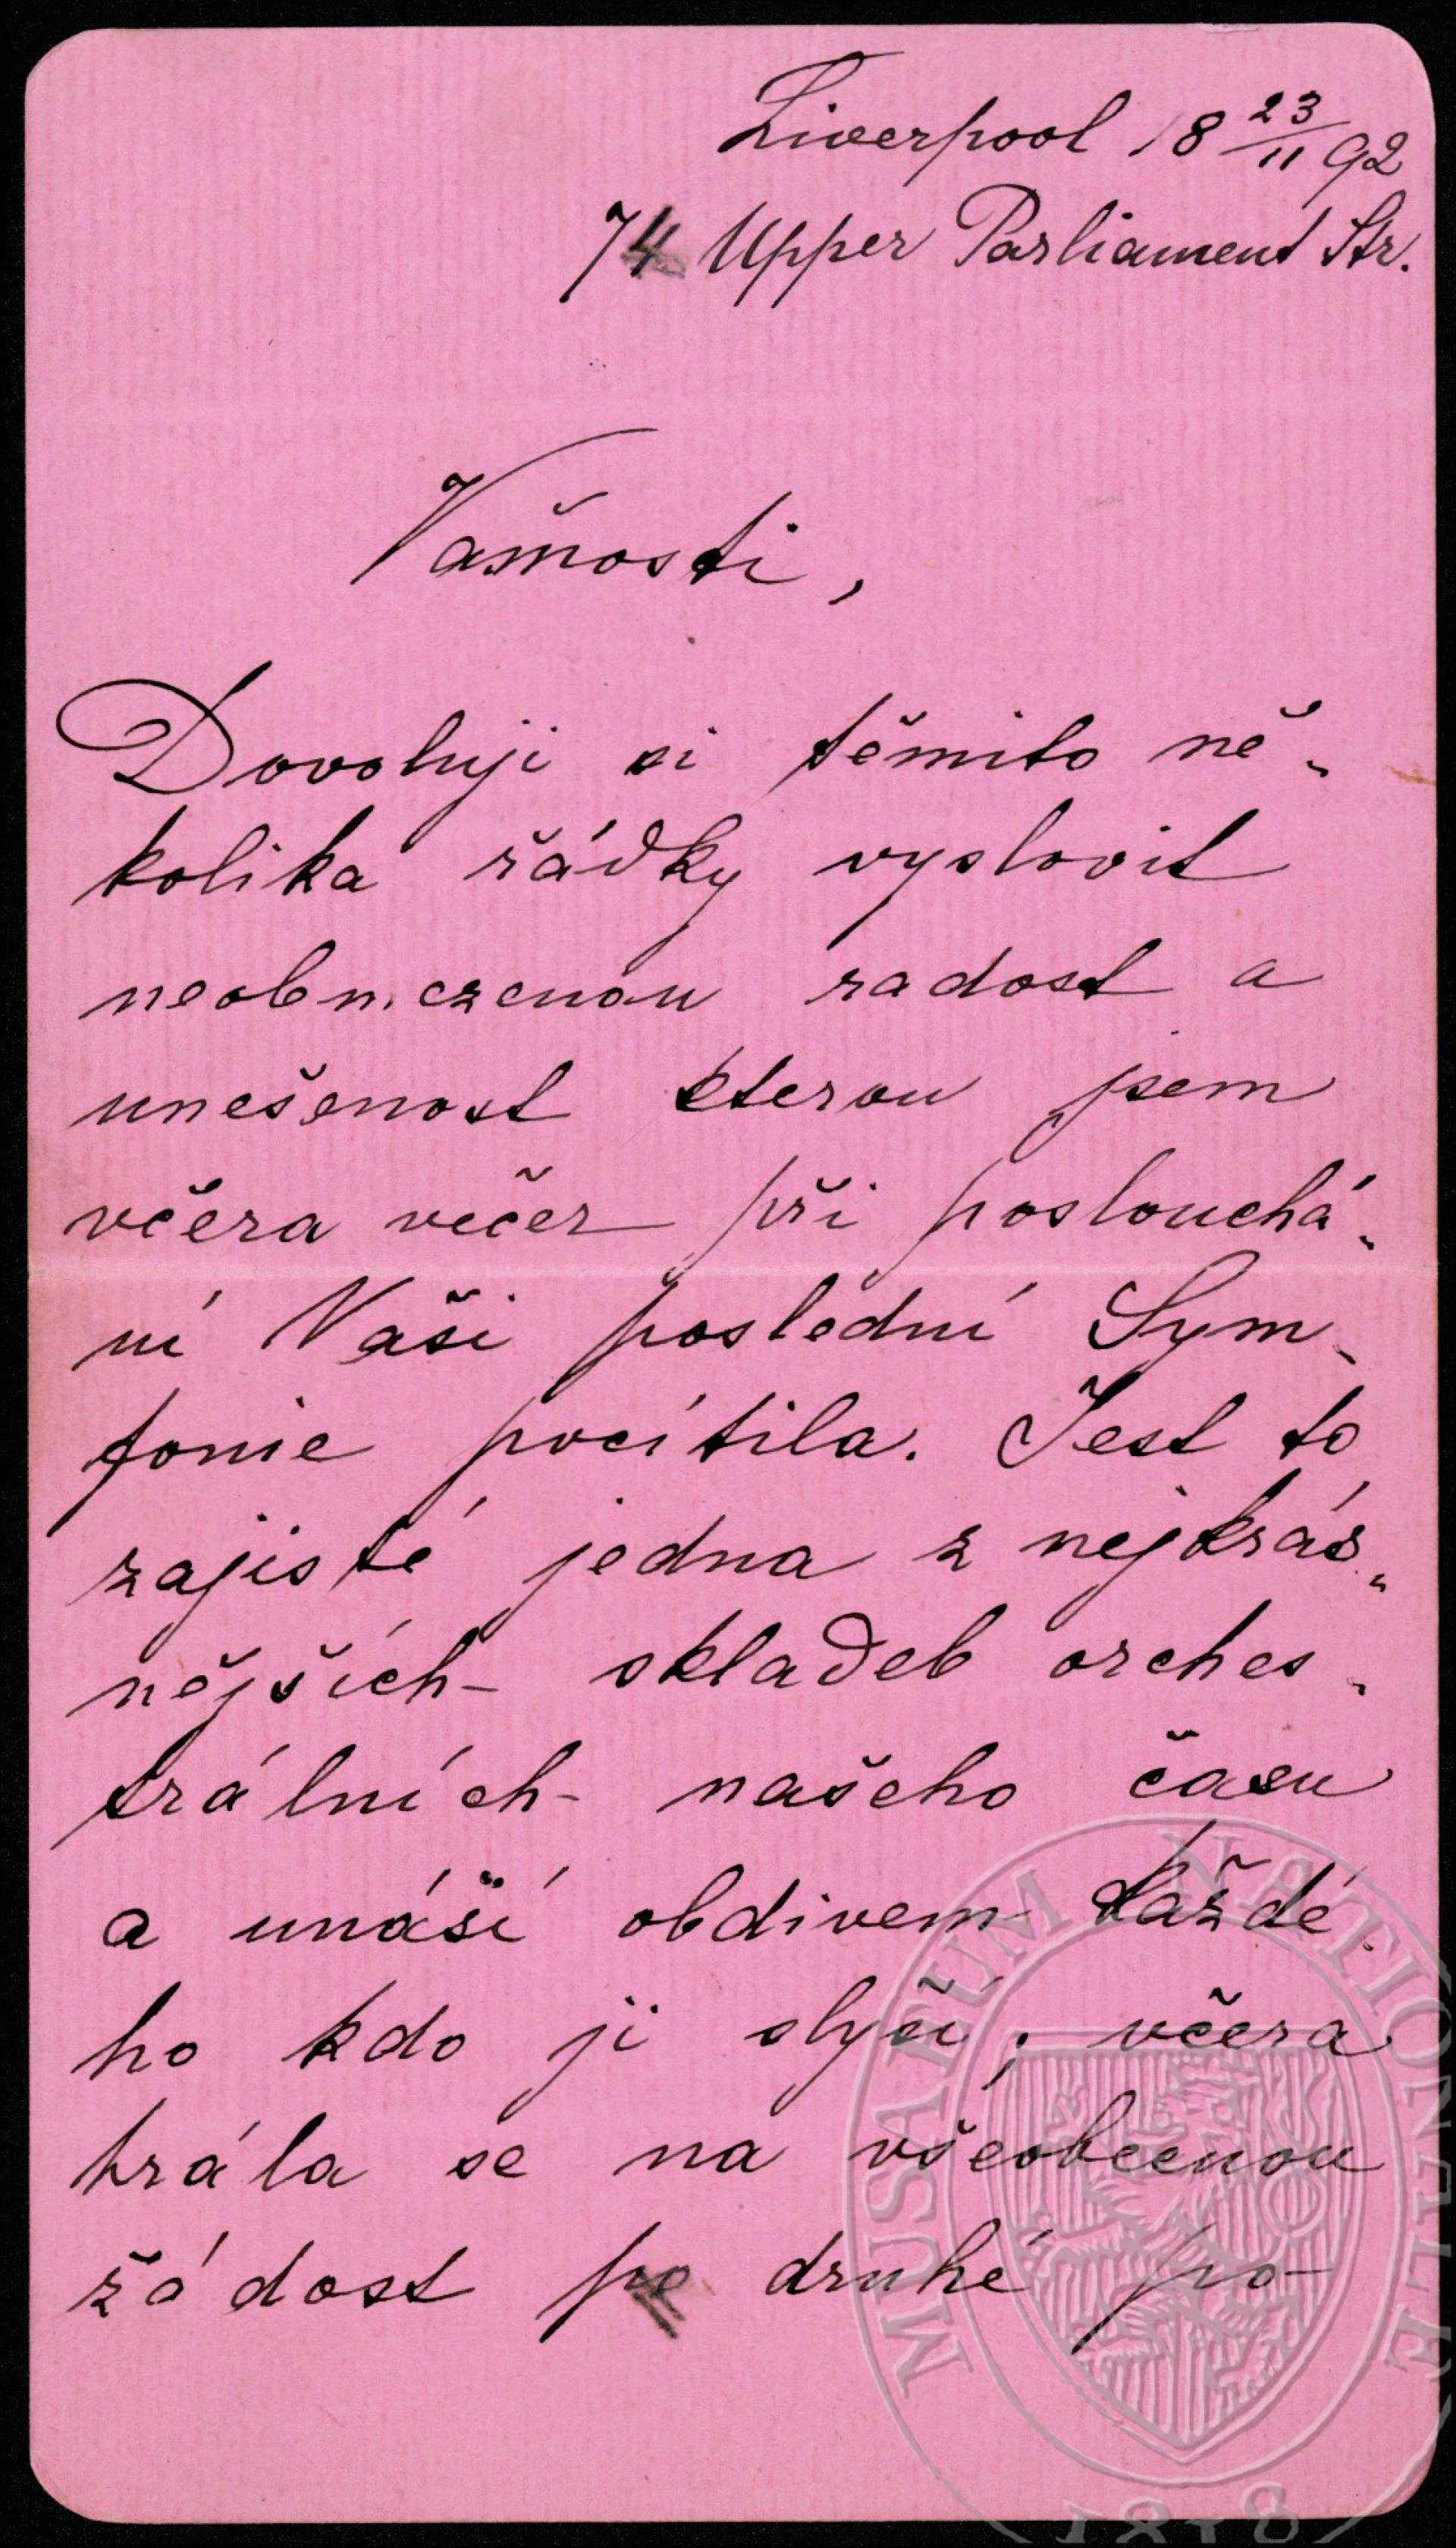 Liverpool 18 23/11 92
74 Upper Parliament Str.
Vašnosti,
Dovoluji si těmito ně„
kolika řádky vyslovit
neobmezenou radost a
unešenost kterou jsem
včera večer při poslouchá„
ní Vaši poslední Sym„
fonie pocítila. Jest to
zajisté jedna z nejkrás„
nějších skladeb orches„
trálních našeho času
a unáší obdivem každé„
ho kdo ji slyší; včera
hrála se na všeobecnou
žádost po druhé po-
MUSAEUM NATIONALE
1818